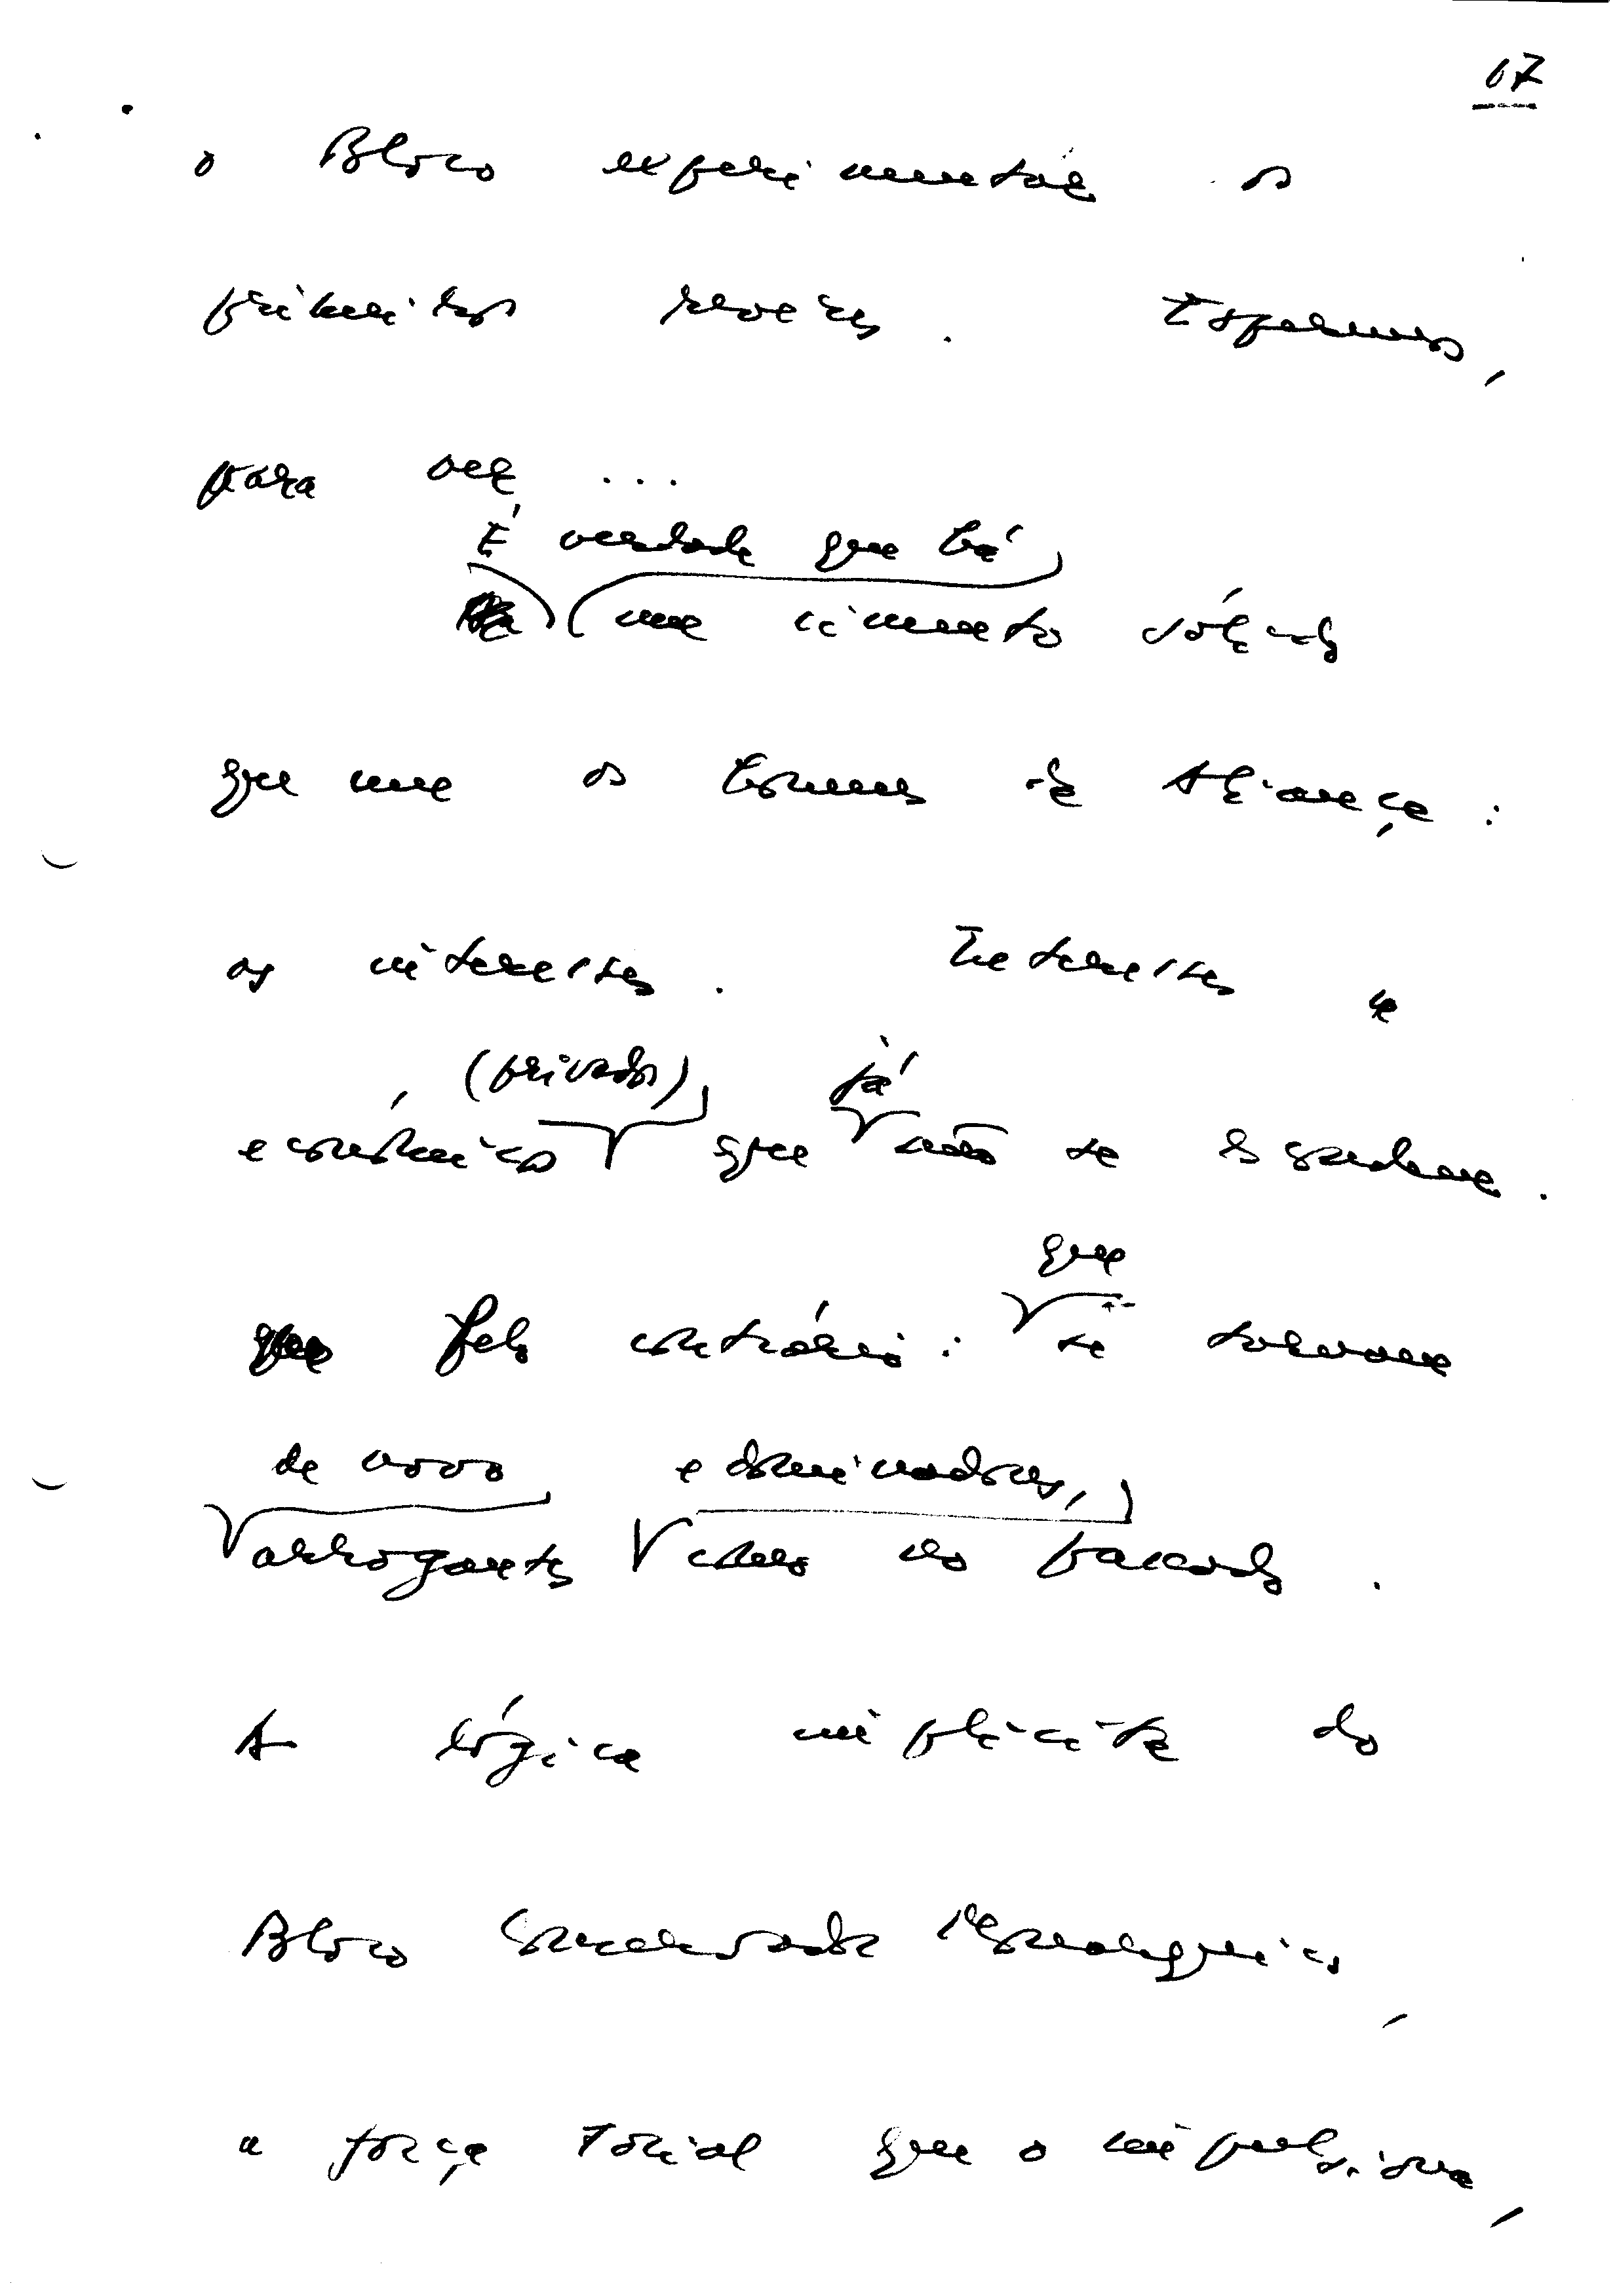 07
o Bloco experimentar os
primeiros revezes. Esperemos,
para ver ...
É verdade que há
um cimento sólido
que une os homens da Aliança:
os interesses. Interesses
económicos (privados) que já não se escondem.
Pelo contrário: que se tornam
de novo arrogantes e dominadores, como no passado.
A lógica implícita do
Bloco Conservador Monárquico,
a força social que o impulsiona,